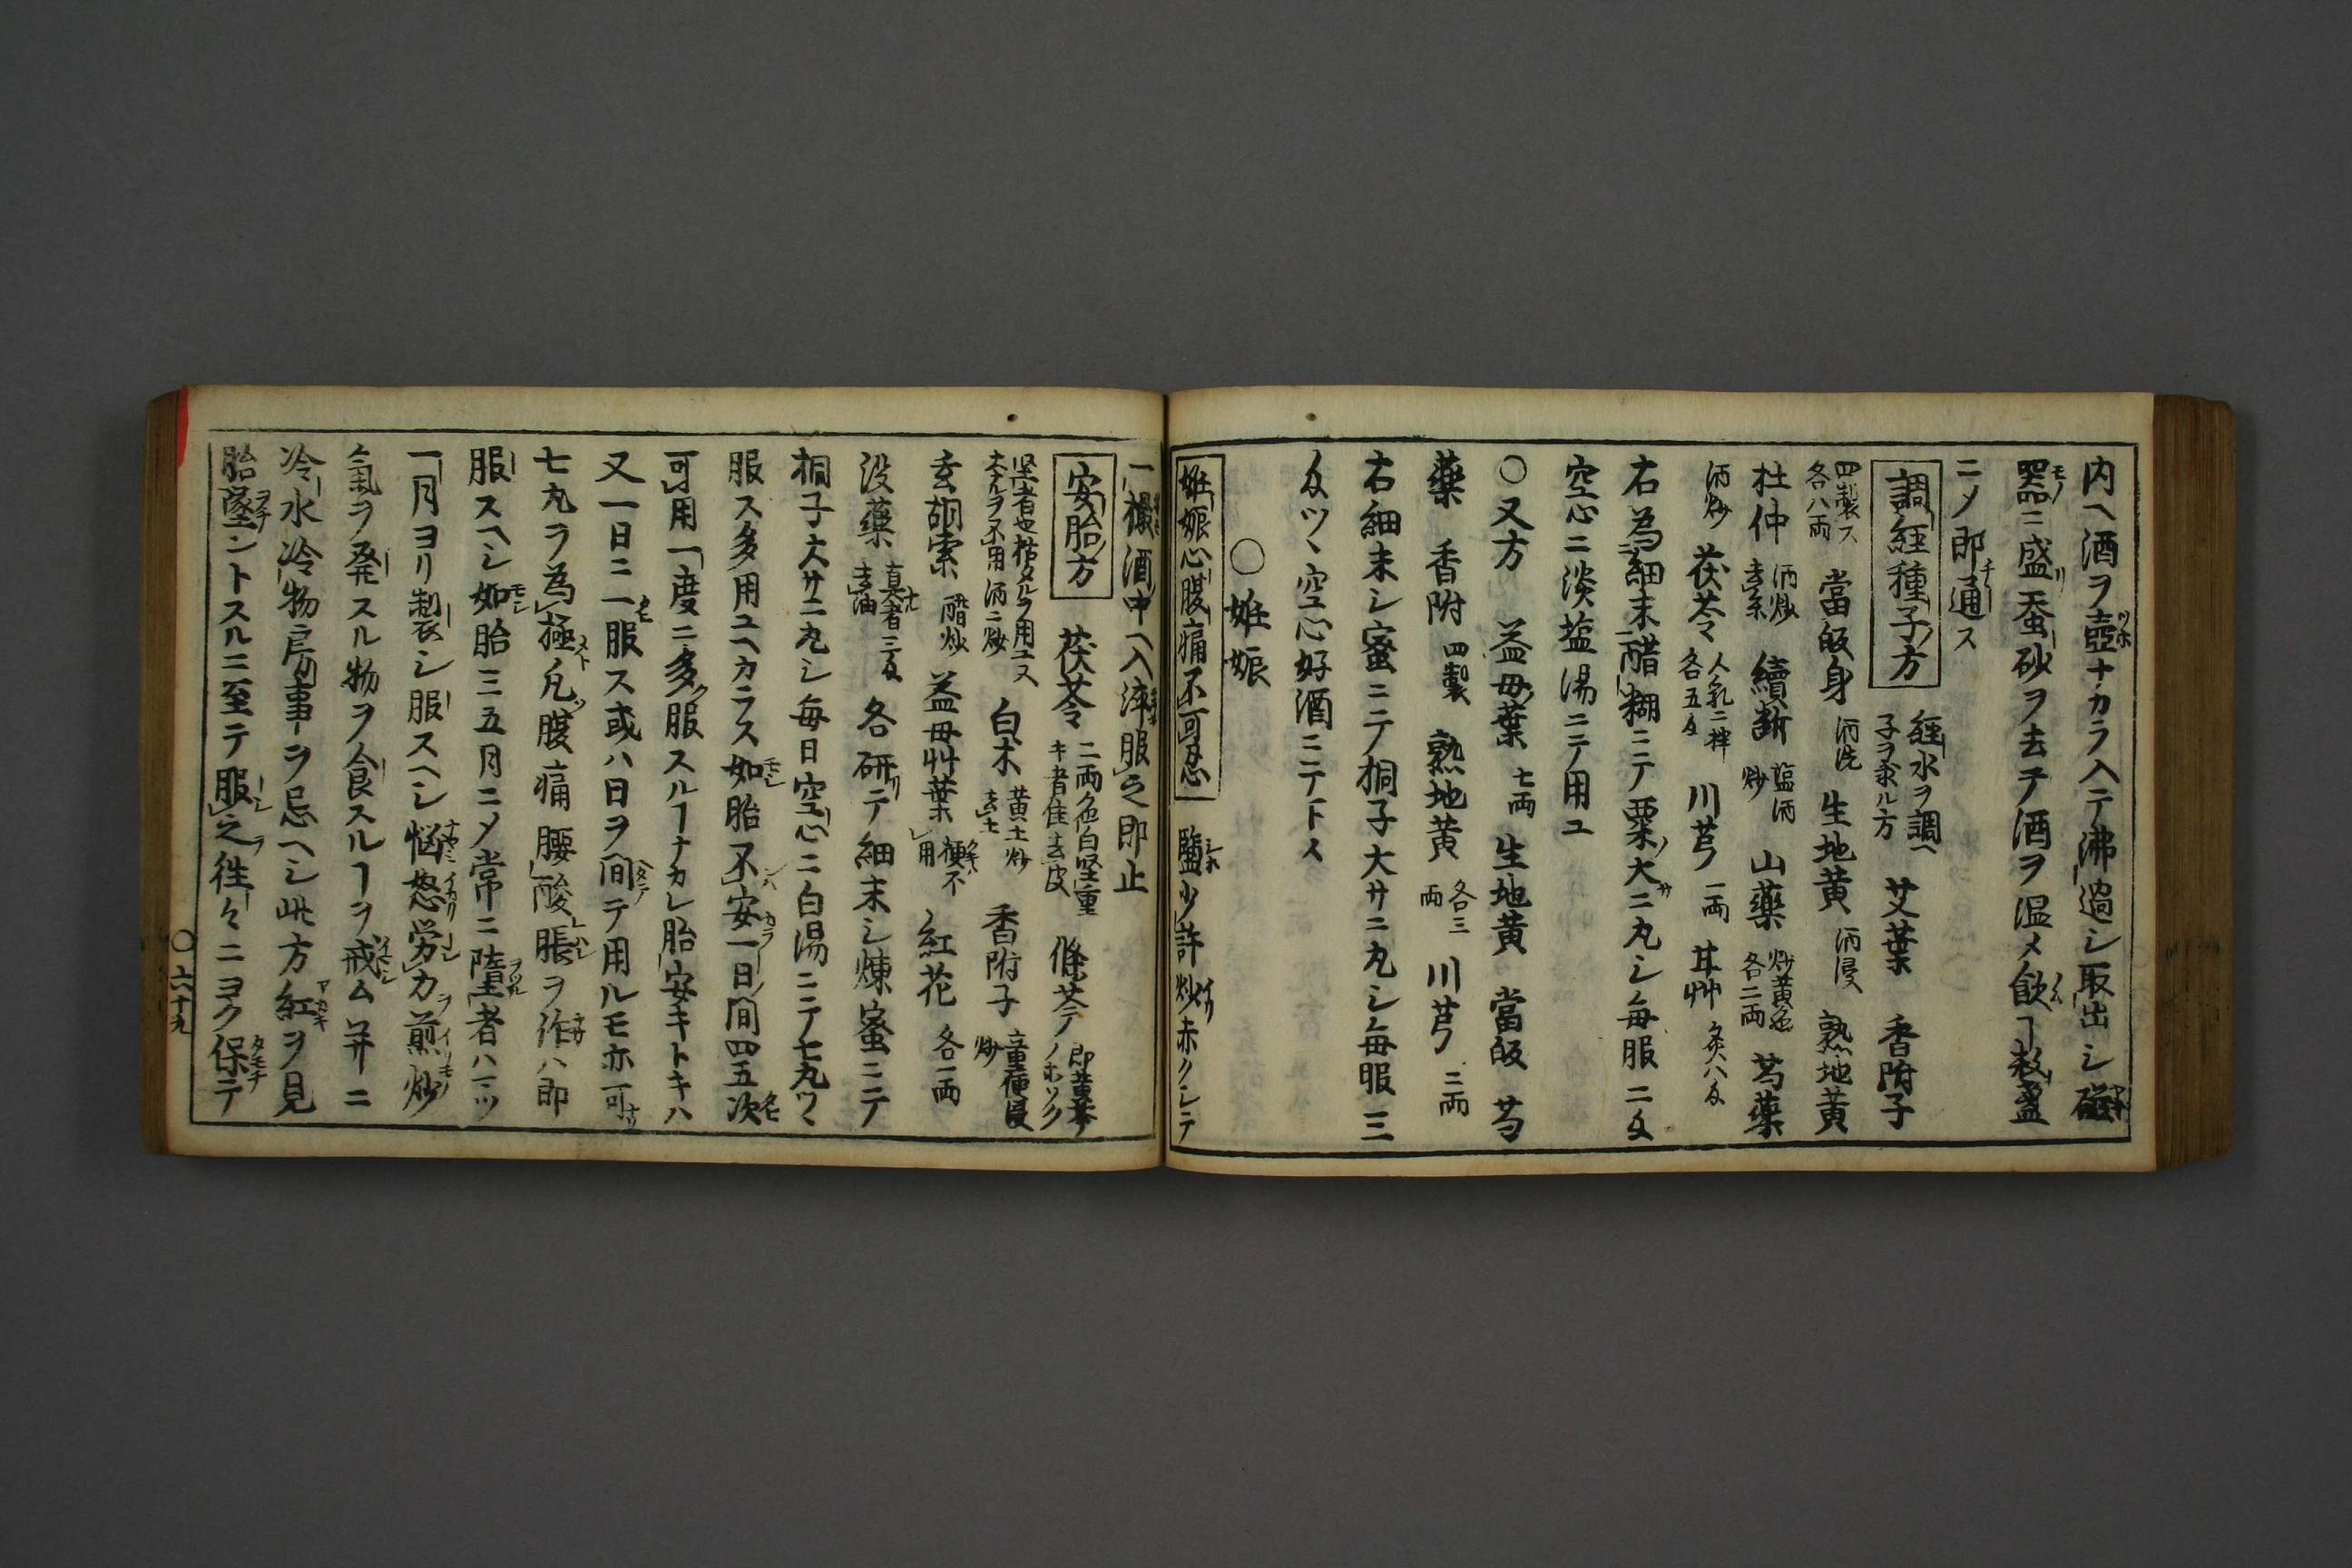 内ヘ酒ヲ壺ナカラ入テ沸過シ取出シ磁
器ニ盛リ蚕砂ヲ去テ酒ヲ温メ飲ヿ数盞
ニメ即通ス
調経種子方 経水ヲ調ヘ子ヲ求ル方 艾葉 香附子
四製ス各八両 當皈身 洒洗 生地黄 洒浸 熟地黄
杜仲 洒炒去糸 續断 塩洒炒 山藥 炒黄色各二両 芍藥
洒炒 茯苓 人乳ニ拌各五匁 川芎 一両 甘艸 炙八匁
右為細末醋糊ニテ粟ノ大サニ丸シ毎服二匁
空心ニ淡塩湯ニテ用ユ
○又方 益母葉 七両 生地黄 當皈 芍
藥 香附 四製 熟地黄 各三両 川芎 二両
右細末シ蜜ニテ桐子大サニ丸シ毎服三
匁ツヽ空心好酒ニテ下ス
○姙娠
姙娠心腹痛不可忍 鹽少許炒赤クシテ
一撮酒中ヘ入淬服之即止
安胎方 茯苓 二両色白堅重キ者佳去皮 條芩 即黄芩ノホソク
堅者也枯タルヲ用エス大ナルヲ不用洒ニ炒 白朮 黄土炒去土 香附子 童便浸炒
玄胡索 醋炒 益母艸葉 梗不用 紅花 各一両
没藥 真者三匁去油 各研リテ細末シ煉蜜ニテ
桐子大サニ丸シ毎日空心ニ白湯ニテ七丸ツヽ
服ス多用ユヘカラス如胎不安一日ノ間四五次
可用一度ニ多ク服スルヿナカレ胎安キトキハ
又一日ニ一服ス或ハ日ヲ間テ用ルモ亦可ナリ
七丸ヲ為極凡ソ腹痛腰酸脹ヲ作ハ即
服スヘシ如胎三五月ニメ常ニ墮者ハ一ツ
一月ヨリ製シ服スヘシ悩怒労力ヲ煎炒
氣ヲ発スル物ヲ食スルヿヲ戒ム并ニ
冷水冷物房事ヲ忌ヘシ此方紅ヲ見
胎墜ントスルニ至テ服之往々ニヨク保テ
○六十九